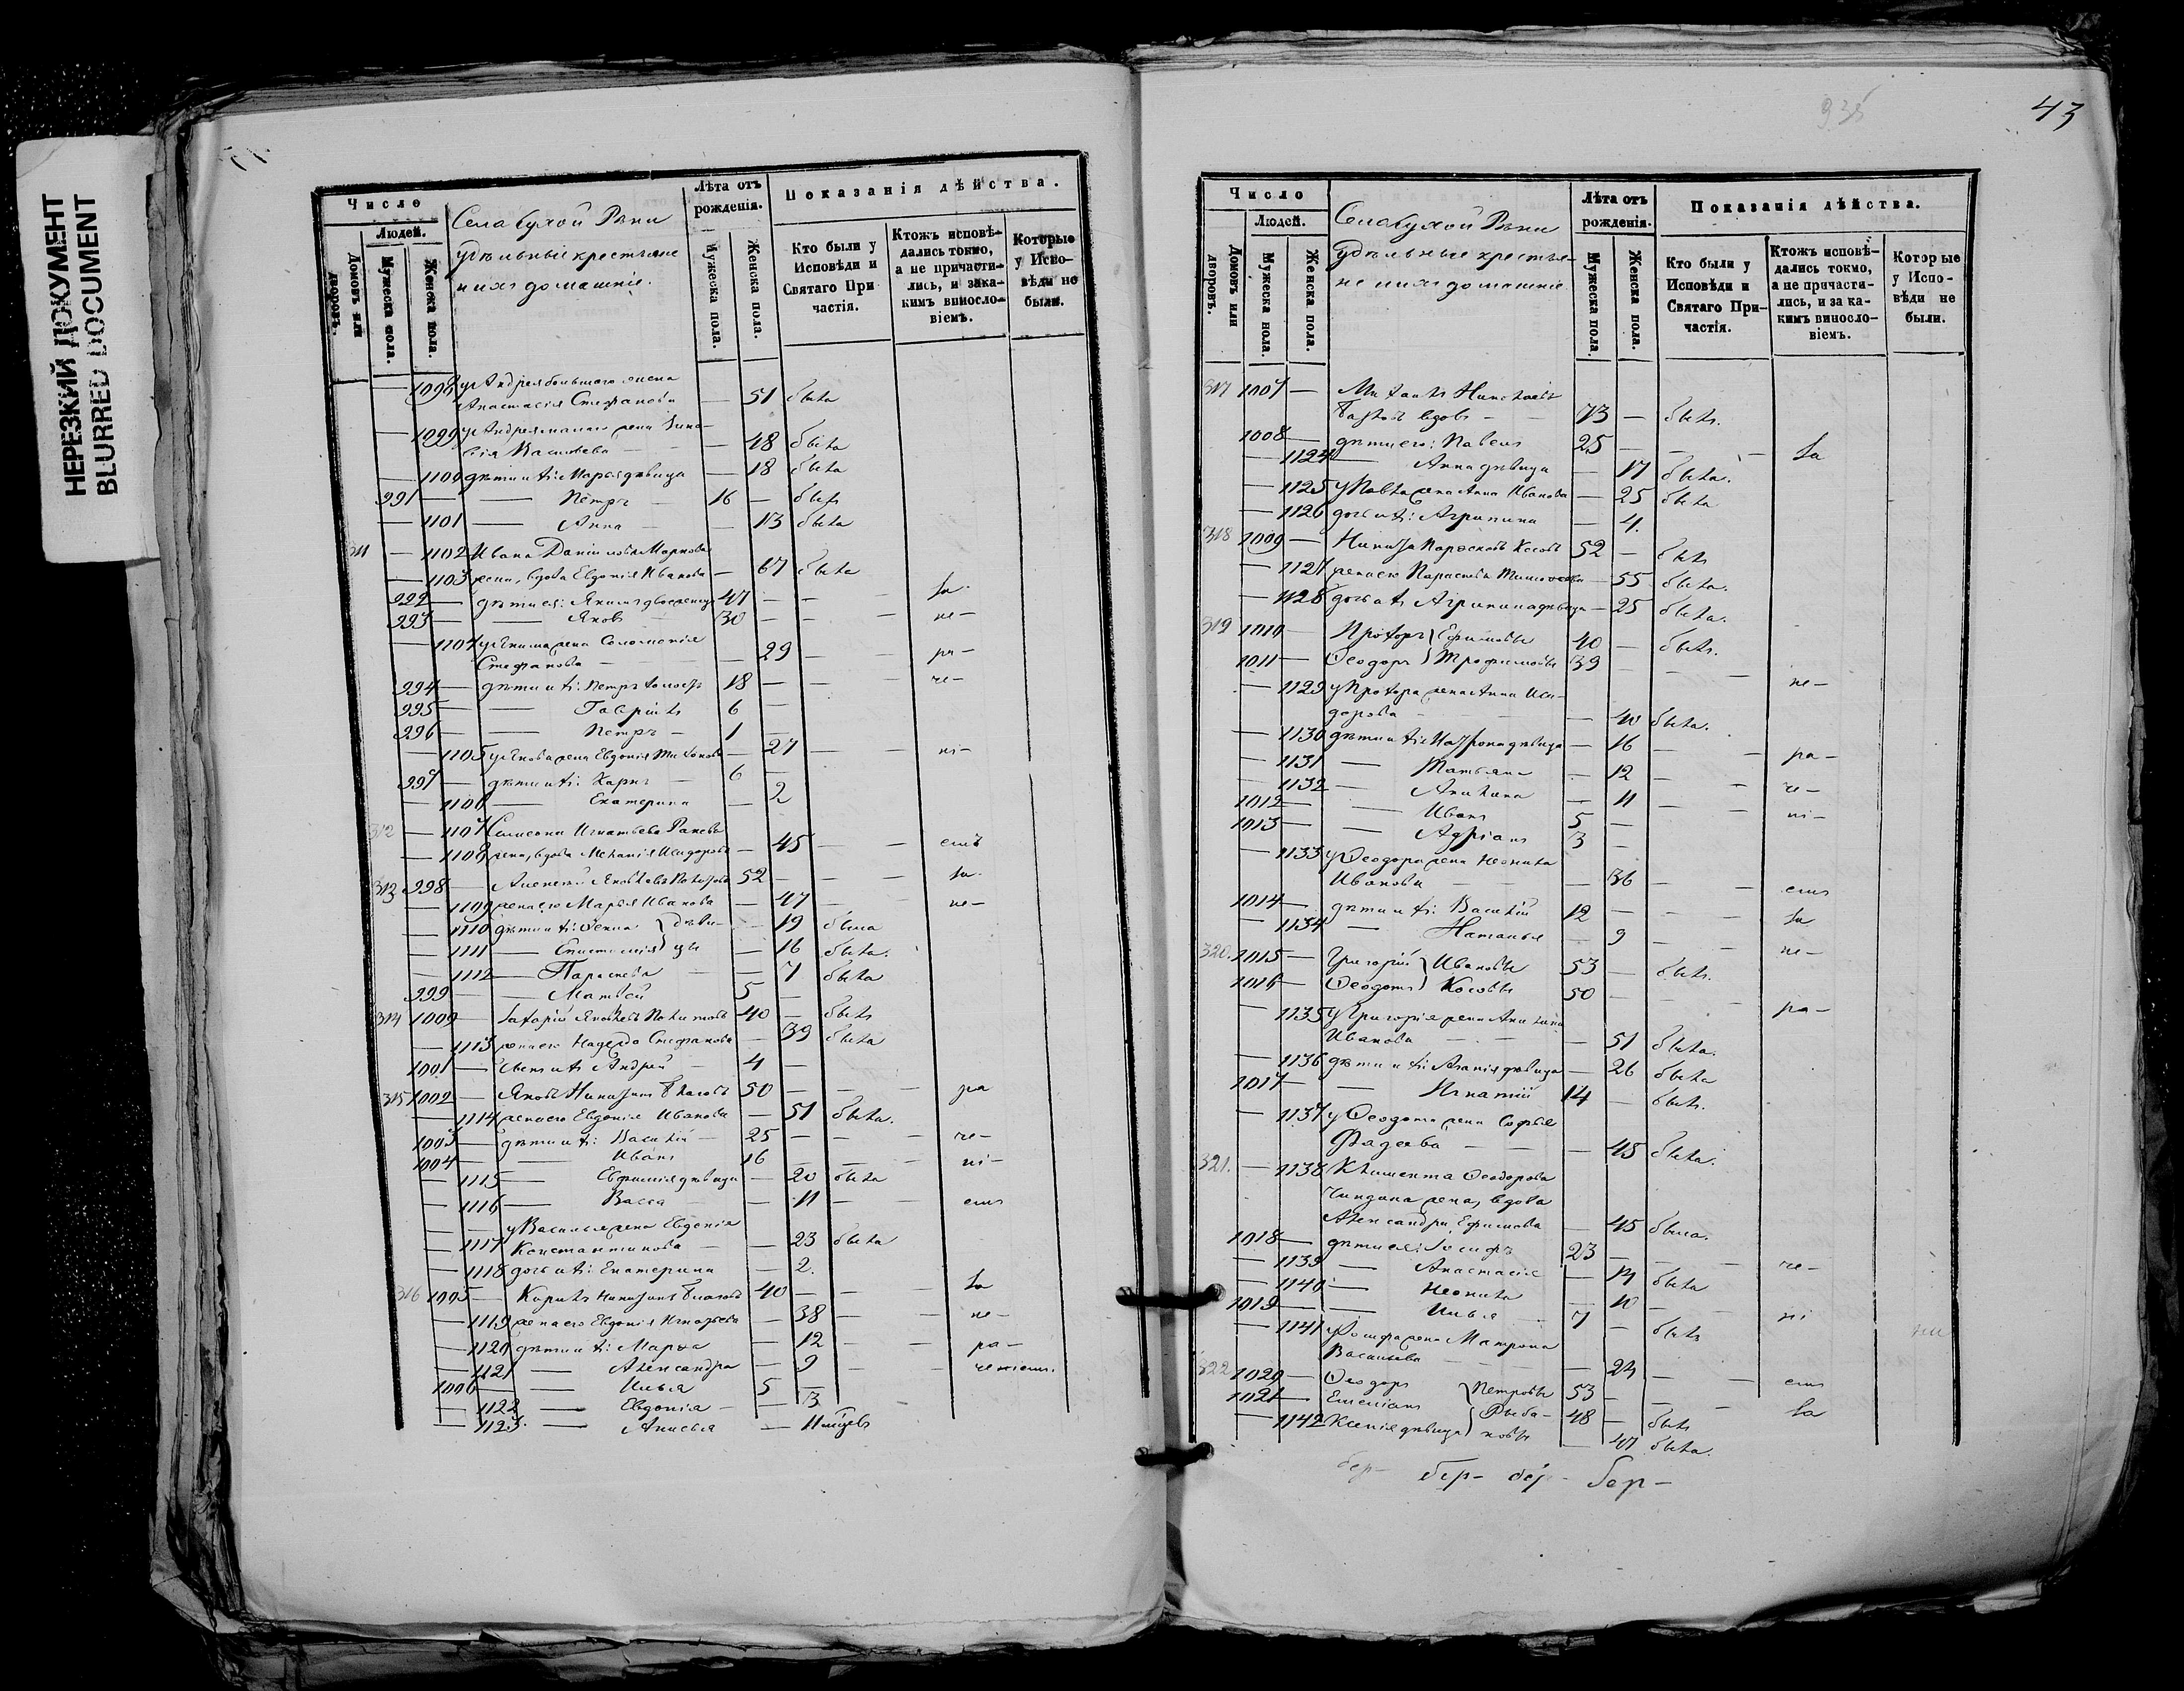 НЕРЕЗКИЙ ДОКУМЕНТ
BLURRED DOCUMENT
Число
Людей.
Домовъ или дворовъ.
Мужеска пола.
Женска пола.
Села Сухой Вязи
удѣльные крестьяне
и ихъ домашніе.
Лѣта отъ рожденія.
Мужеска пола.
Женска пола.
Показанія дѣйства.
Кто были у Исповѣди и Святаго Причастія.
Ктожъ исповѣдались токмо, а не причастились, и за какимъ винословіемъ.
Которые у Исповѣди не были.
— 1098 у Андрея большого жена
Анастасія Стефанова — 51 была
— 1099 у Андрея малаго жена
Васильева — 48 была
— 1100 дѣти ихъ: Марья дѣвица — 18 была
991 — Петръ 16 — былъ
— 1101 — Анна — 13 была
311 — 1102 Ивана Даніилова Маркова
— 1103 жена, вдова Евдокія Иванова — 67 была
992 — дѣти ея: Якимъ двоеженецъ 47 — — за
993 — Яковъ 30 — — не-
— 1104 у Якима жена Соломонія
Стефанова — 29 — — ра-
994 — дѣти ихъ: Петръ холостъ 18 — — че-
995 — Гавріилъ 6 —
996 — Петръ 1 —
— 1105 у Якова жена Евдокія Тихонова — 27 — — ні-
997 — дѣти ихъ: Карпъ 6 —
— 1106 — Екатерина — 2
312 — 1107 Симеона Игнатьева
— 1108 жена, вдова Меланія Исидорова — 45 — — емъ
313 998 — Алексѣй Яковлевъ 52 — — за
— 1109 жена его Марья Иванова — 47 — — не-
— 1110 дѣти ихъ: Ѳекла } дѣви- — 19 была
— 1111 — Епистимія } цы — 16 была.
— 1112 — Параскева — 7 была
999 — Матвѣй 5 —
314 1000 — Захарій Яковлевъ 40 — былъ
— 1113 жена его Надежда Стефанова — 39 была
1001 — сынъ ихъ Андрей 4 —
315 1002 — Яковъ Никитинъ Власовъ 50 — — ра
— 1114 жена его Евдокія Иванова — 51 была.
1003 — дѣти ихъ: Василій 25 — — че-
1004 — Иванъ 16 — — ні-
— 1115 — Евфимія дѣвица — 20 была
— 1116 — Васса — 11 — — емъ
— у Василья жена Евгенія
— 1117 Константинова — 23 была
— 1118 дочь ихъ: Екатерина — 2.
316 1005 — Кирилъ Никитинъ Власовъ 40 — — за
— 1119 жена его Евдокія Игнатьева — 38 — — не-
— 1120 дѣти ихъ: Марѳа — 12 — — ра-
— 1121 — Александра — 9 — — ченіемъ.
1006 — Илья 5 —
— 1122 — Евдокія — 3
— 1123. — Анисья — 11 мѣсяцевъ
935
43
Число
Людей.
Домовъ или дворовъ.
Мужеска пола.
Женска пола.
Села Сухой Вязи
удѣльные крестья-
не и ихъ домашніе.
Лѣта отъ рожденія.
Мужеска пола.
Женска пола.
Показанія дѣйства.
Кто были у Исповѣди и Святаго Причастія.
Ктожъ исповѣдались токмо, а не причастились, и за какимъ винословіемъ.
Которые у Исповѣди не были.
317 1007 — Михаилъ Николаевъ
вдовъ — 73 — былъ.
1008 — дѣти его: Павелъ 25 — — за
— 1124 — Анна дѣвица — 17 была.
— 1125 у Павла жена Анна Иванова — 25 была
— 1126 дочь ихъ: Агрипина — 4.
318 1009 — Никита Косовъ 52 — былъ
— 1127 жена его Параскева Тимоѳеева — 55 была.
— 1128 дочь ихъ Агрипина дѣвица — 25 была.
319 1010 — Прохоръ } Ефимовы 40 — былъ.
1011 — Ѳеодоръ } Трофимовы 39 — — не-
— 1129 у Прохора жена Анна Иси-
дорова — 40 была.
— 1130 дѣти ихъ: Матрона дѣвица — 16 — — ра-
— 1131 — Татьяна — 12 — — че-
— 1132 — Акилина — 11 — — ні-
1012 — Иванъ 5 —
1013 — Адріанъ 3 —
— 1133 у Ѳеодора жена Неонила
Иванова — 36 — — емъ
1014 — дѣти ихъ: Василій 12 — — за
— 1134 — Наталья — 9 — — не-
320. 1015 — Григорій } Ивановы 53 — былъ.
1016 — Ѳеодотъ } Косовы 50 — — ра-
— 1135 у Григорія жена Акилина
Иванова — 51 была.
— 1136 дѣти ихъ: Агапія дѣвица — 26 была
1017 — Игнатій 14 — былъ.
— 1137 у Ѳеодота жена Софья
Фадеева — 45 была.
321. — 1138 Климента Ѳеодорова
Чиндина жена, вдова
Александра Ефимова — 45 была.
1018 — дѣти ея: Іосифъ 23 — — че-
— 1139 — Анастасія — 14 была
— 1140 — Неонила — 10 — — ні
1019 — Илья 7 — былъ
— 1141 у Іосифа жена Матрона
Васильева — 24 — — емъ
322 1020 — Ѳеодоръ } Петровы 53 — — за
1021 — Емеліанъ } Рыба- 48 — былъ
— 1142 Ксенія дѣвица } ковы — 47 была.
бер- бер- бер- бер-